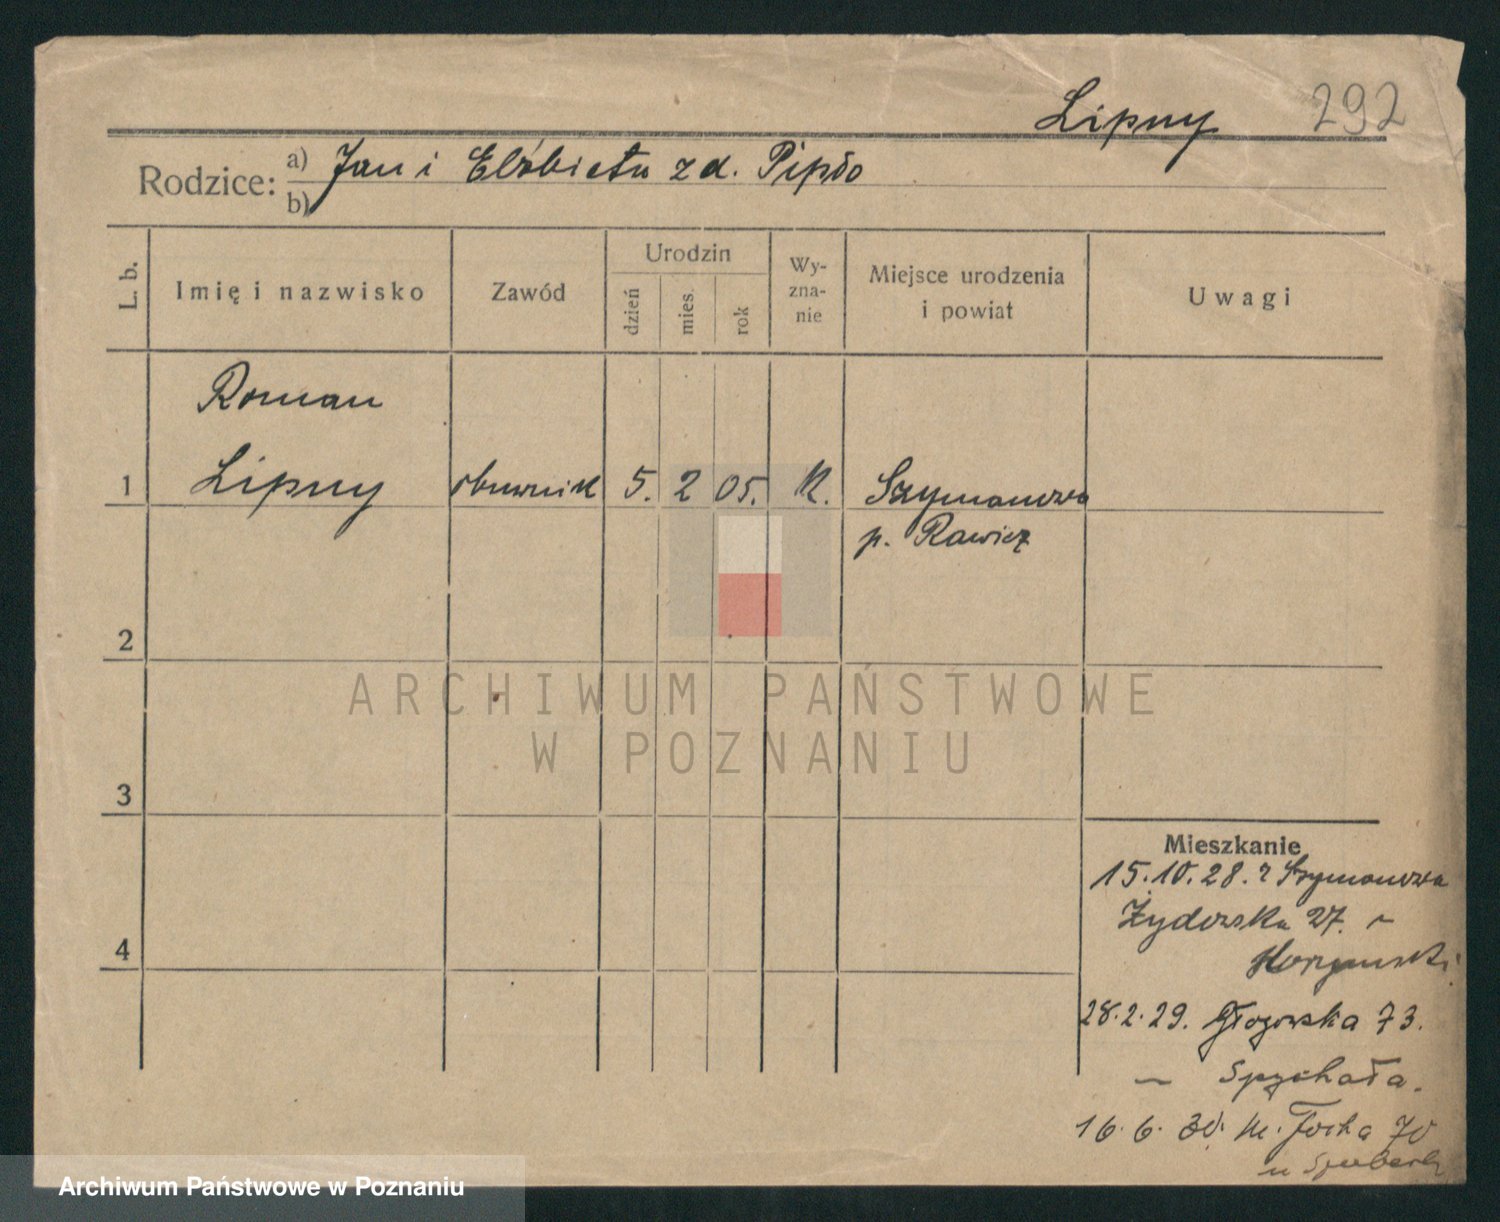 Lipny 292
Rodzice: a) Jan i Elżbieta z d. Pipło
b)
L. b. Imię i nazwisko Zawód Urodzin Wy-zna-nie Miejsce urodzenia i powiat Uwagi
dzień mies. rok
Roman
1 Lipny obuwnik 5. 2 05. K. Szymanowo
p. Rawicz
2
ARCHIWUM PAŃSTWOWE
W POZNANIU
3
Mieszkanie
15.10.28. z Szymanowa
Żydowska 27.
4
28.2.29. Głogowska 73.
— Spychała.
16.6.30. M. Focha 70
u
Archiwum Państwowe w Poznaniu